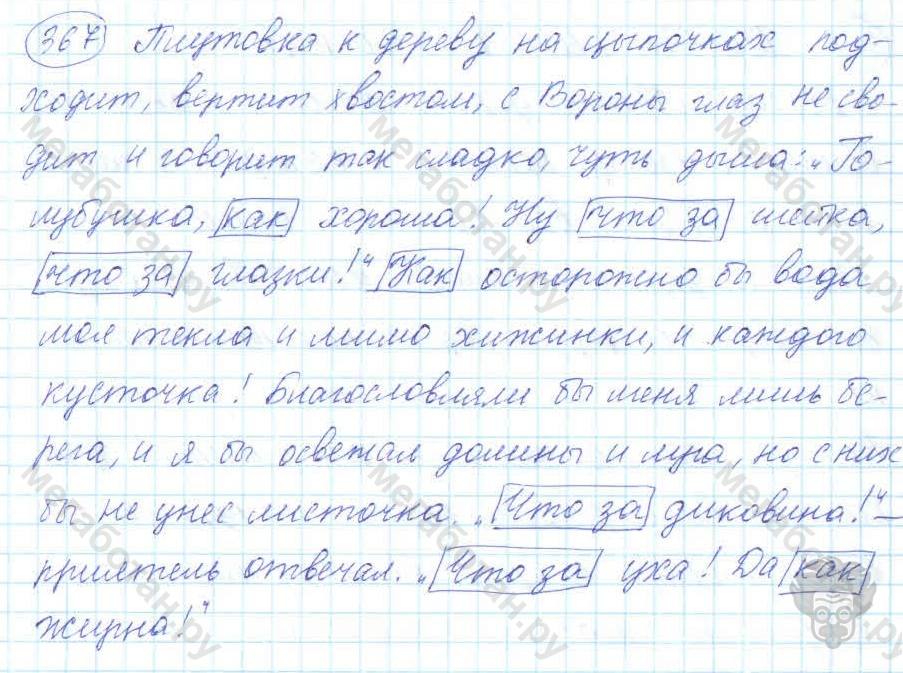 367 Плутовка к дереву на цыпочках под-
ходит, вертит хвостом, с Вороны глаз не сво-
дит и говорит так сладко, чуть дыша: „Го-
лубушка, как хороша! Ну что за шейка,
что за глазки!" Как осторожно бы вода
моя текла и мимо хижинки, и каждого
кусточка! Благословляли бы меня лишь бе-
рега, и я бы освежал долины и луга, но с них
бы не унес листочка. „Что за диковина!" –
приятель отвечал. „Что за уха! Да как
жирна!"
мегаботан.ру